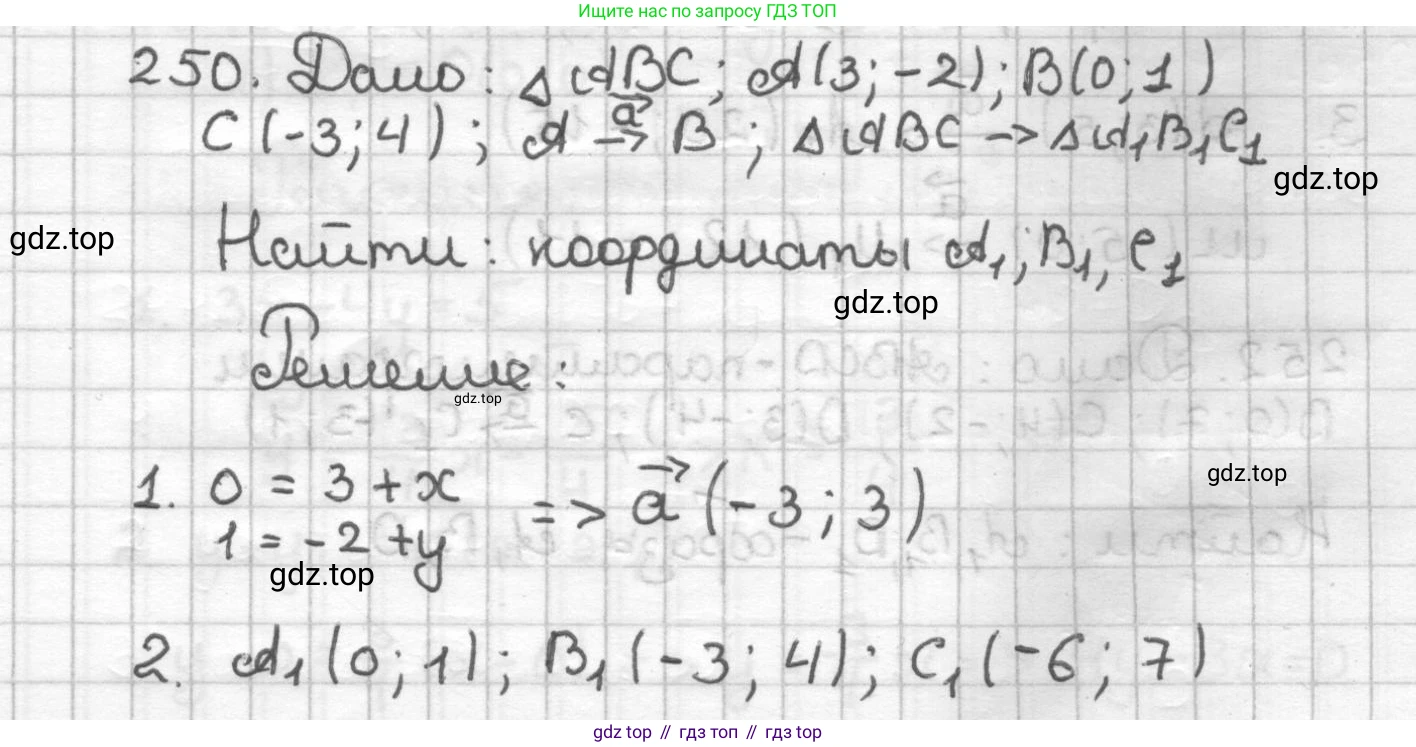 Ищите нас по запросу ГДЗ ТОП
250. Дано: △ABC; A(3;-2); B(0;1)
C(-3;4); A →(a⃗) B; △ABC -> △A₁B₁C₁
gdz.top
gdz.top
Найти: координаты A₁; B₁, C₁
gdz.top
Решение:
gdz.top
1. 0 = 3 + x
1 = -2 + y
=> a⃗ (-3; 3)
gdz.top
gdz.top
2. A₁(0;1); B₁(-3;4); C₁(-6;7)
gdz top // гдз топ // gdz top